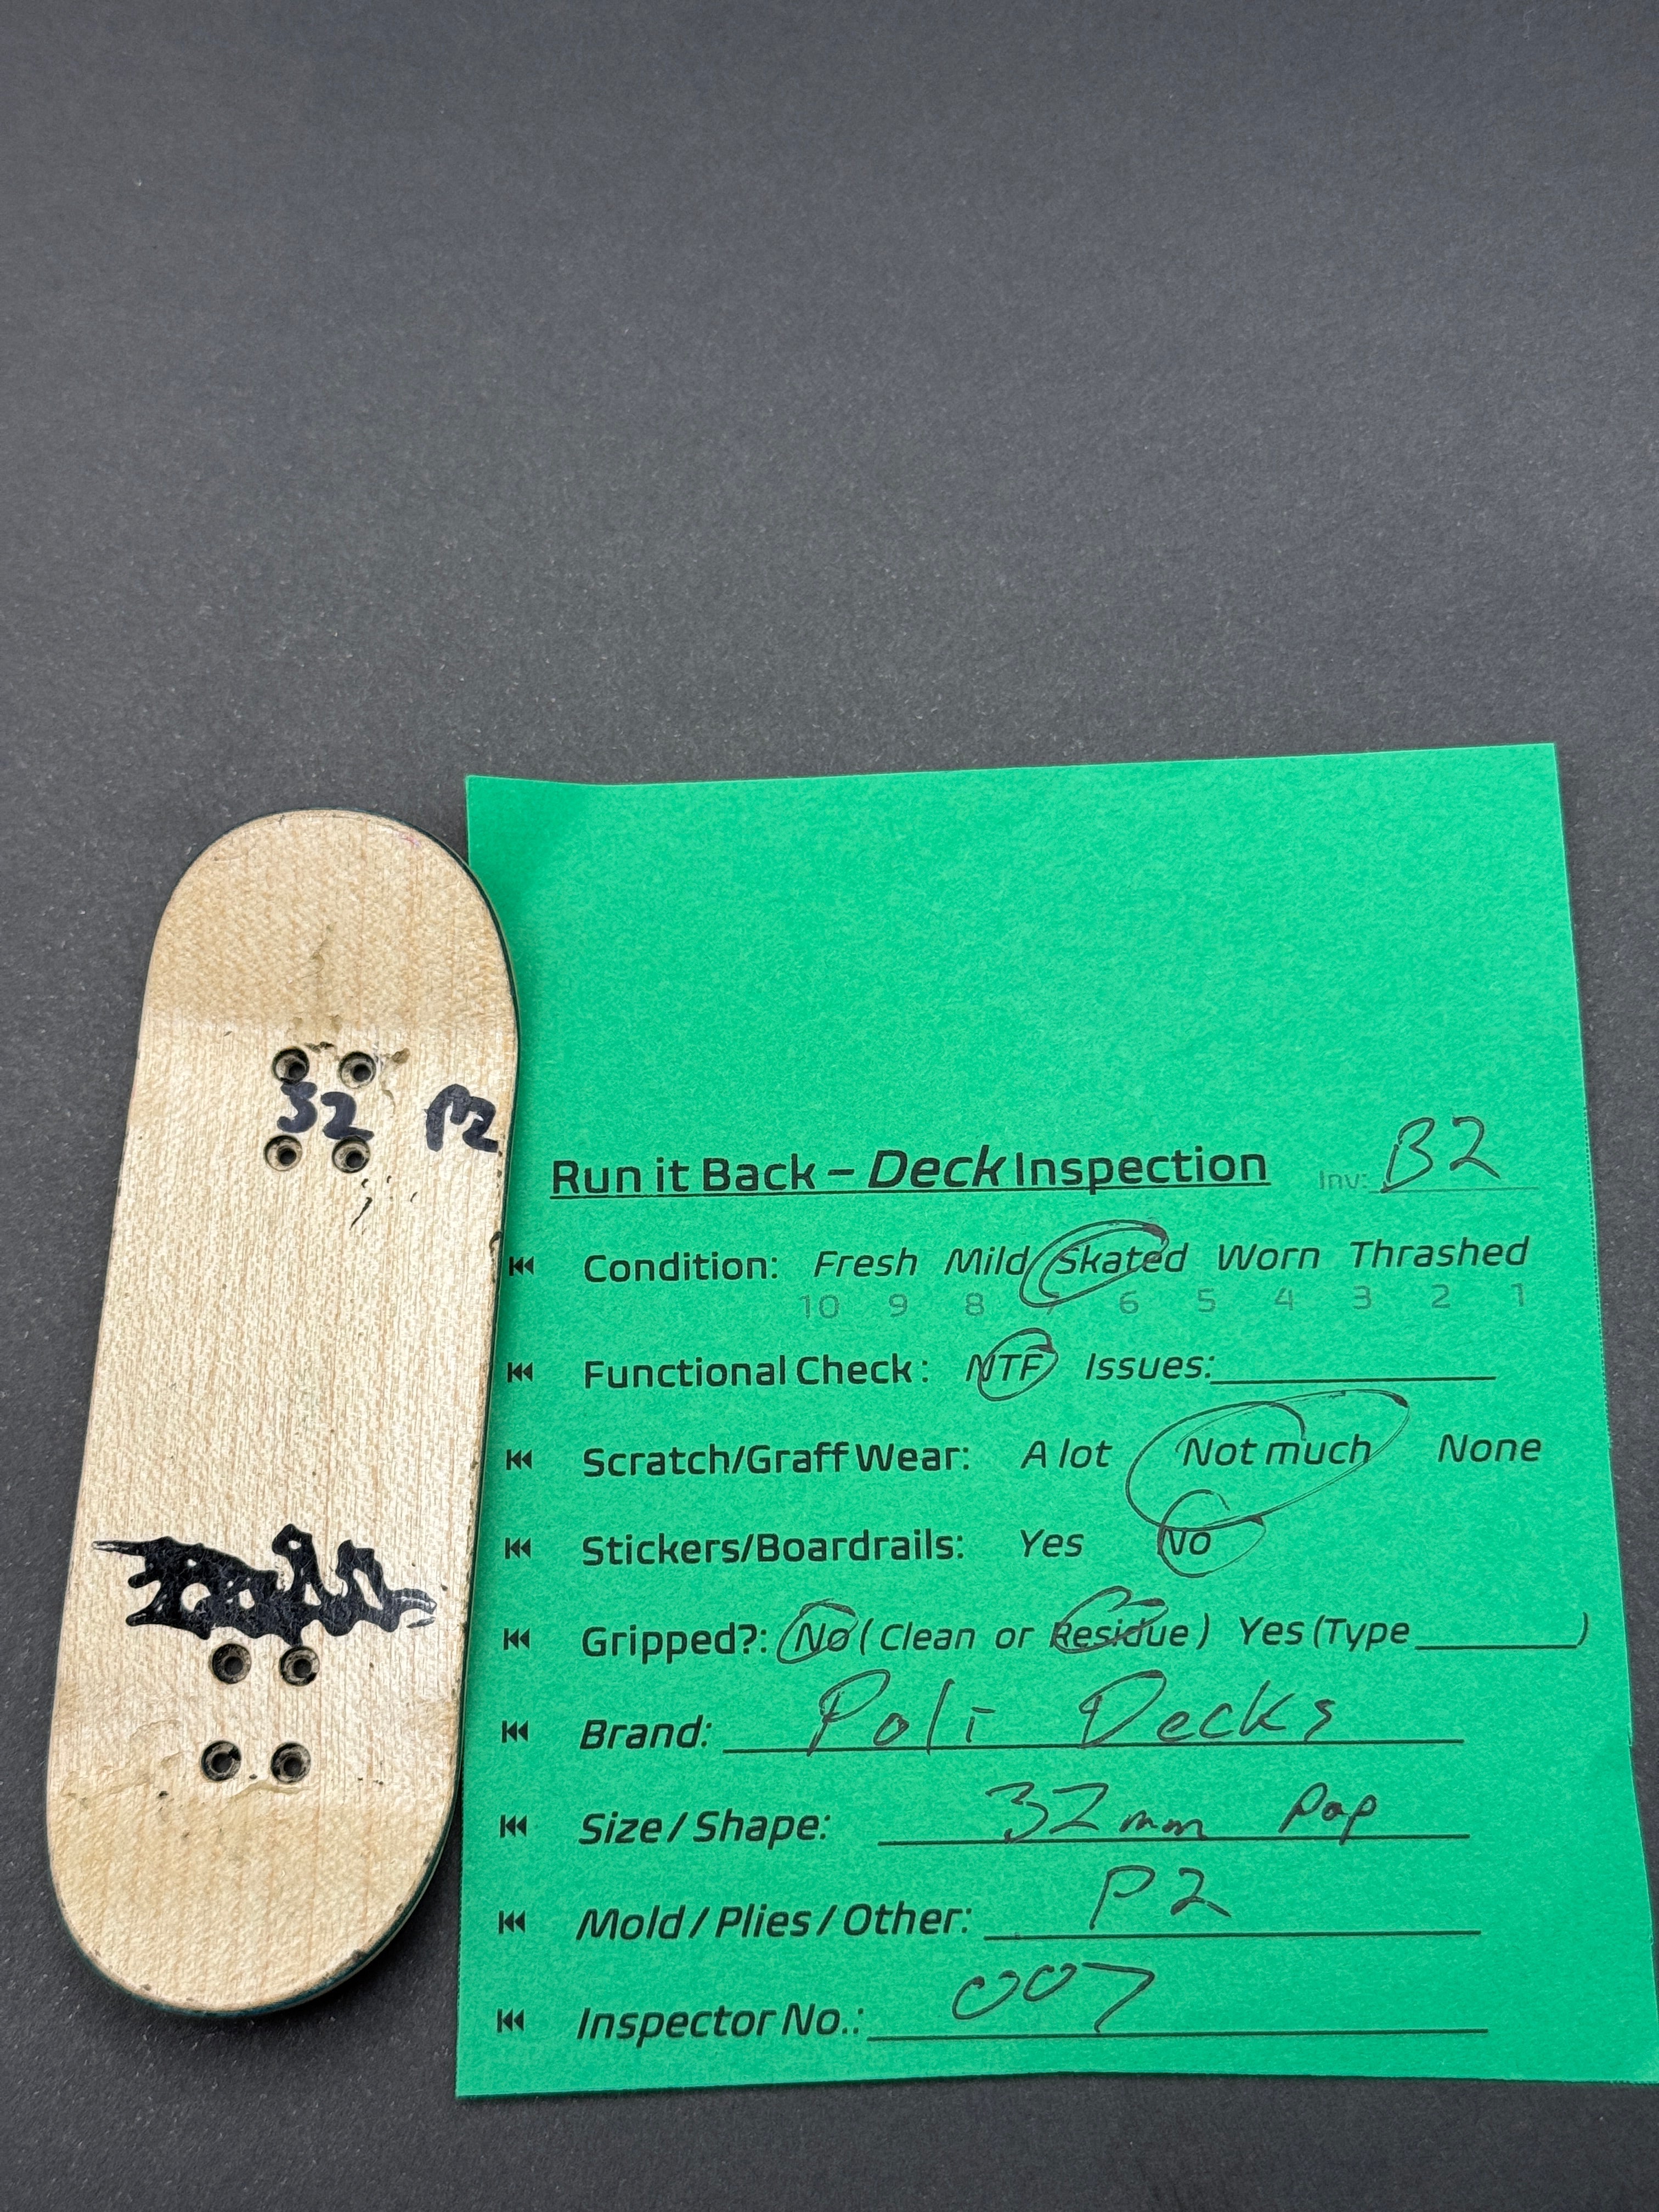 32 P2
Run it Back – Deck Inspection Inv: B2
Condition: Fresh Mild Skated Worn Thrashed
10 9 8 7 6 5 4 3 2 1
Functional Check: NTF Issues:
Scratch/Graff Wear: A lot Not much None
Stickers/Boardrails: Yes No
Gripped?: No (Clean or Residue) Yes (Type )
Brand: Poli Decks
Size / Shape: 32mm Pop
Mold / Plies / Other: P2
Inspector No.: 007